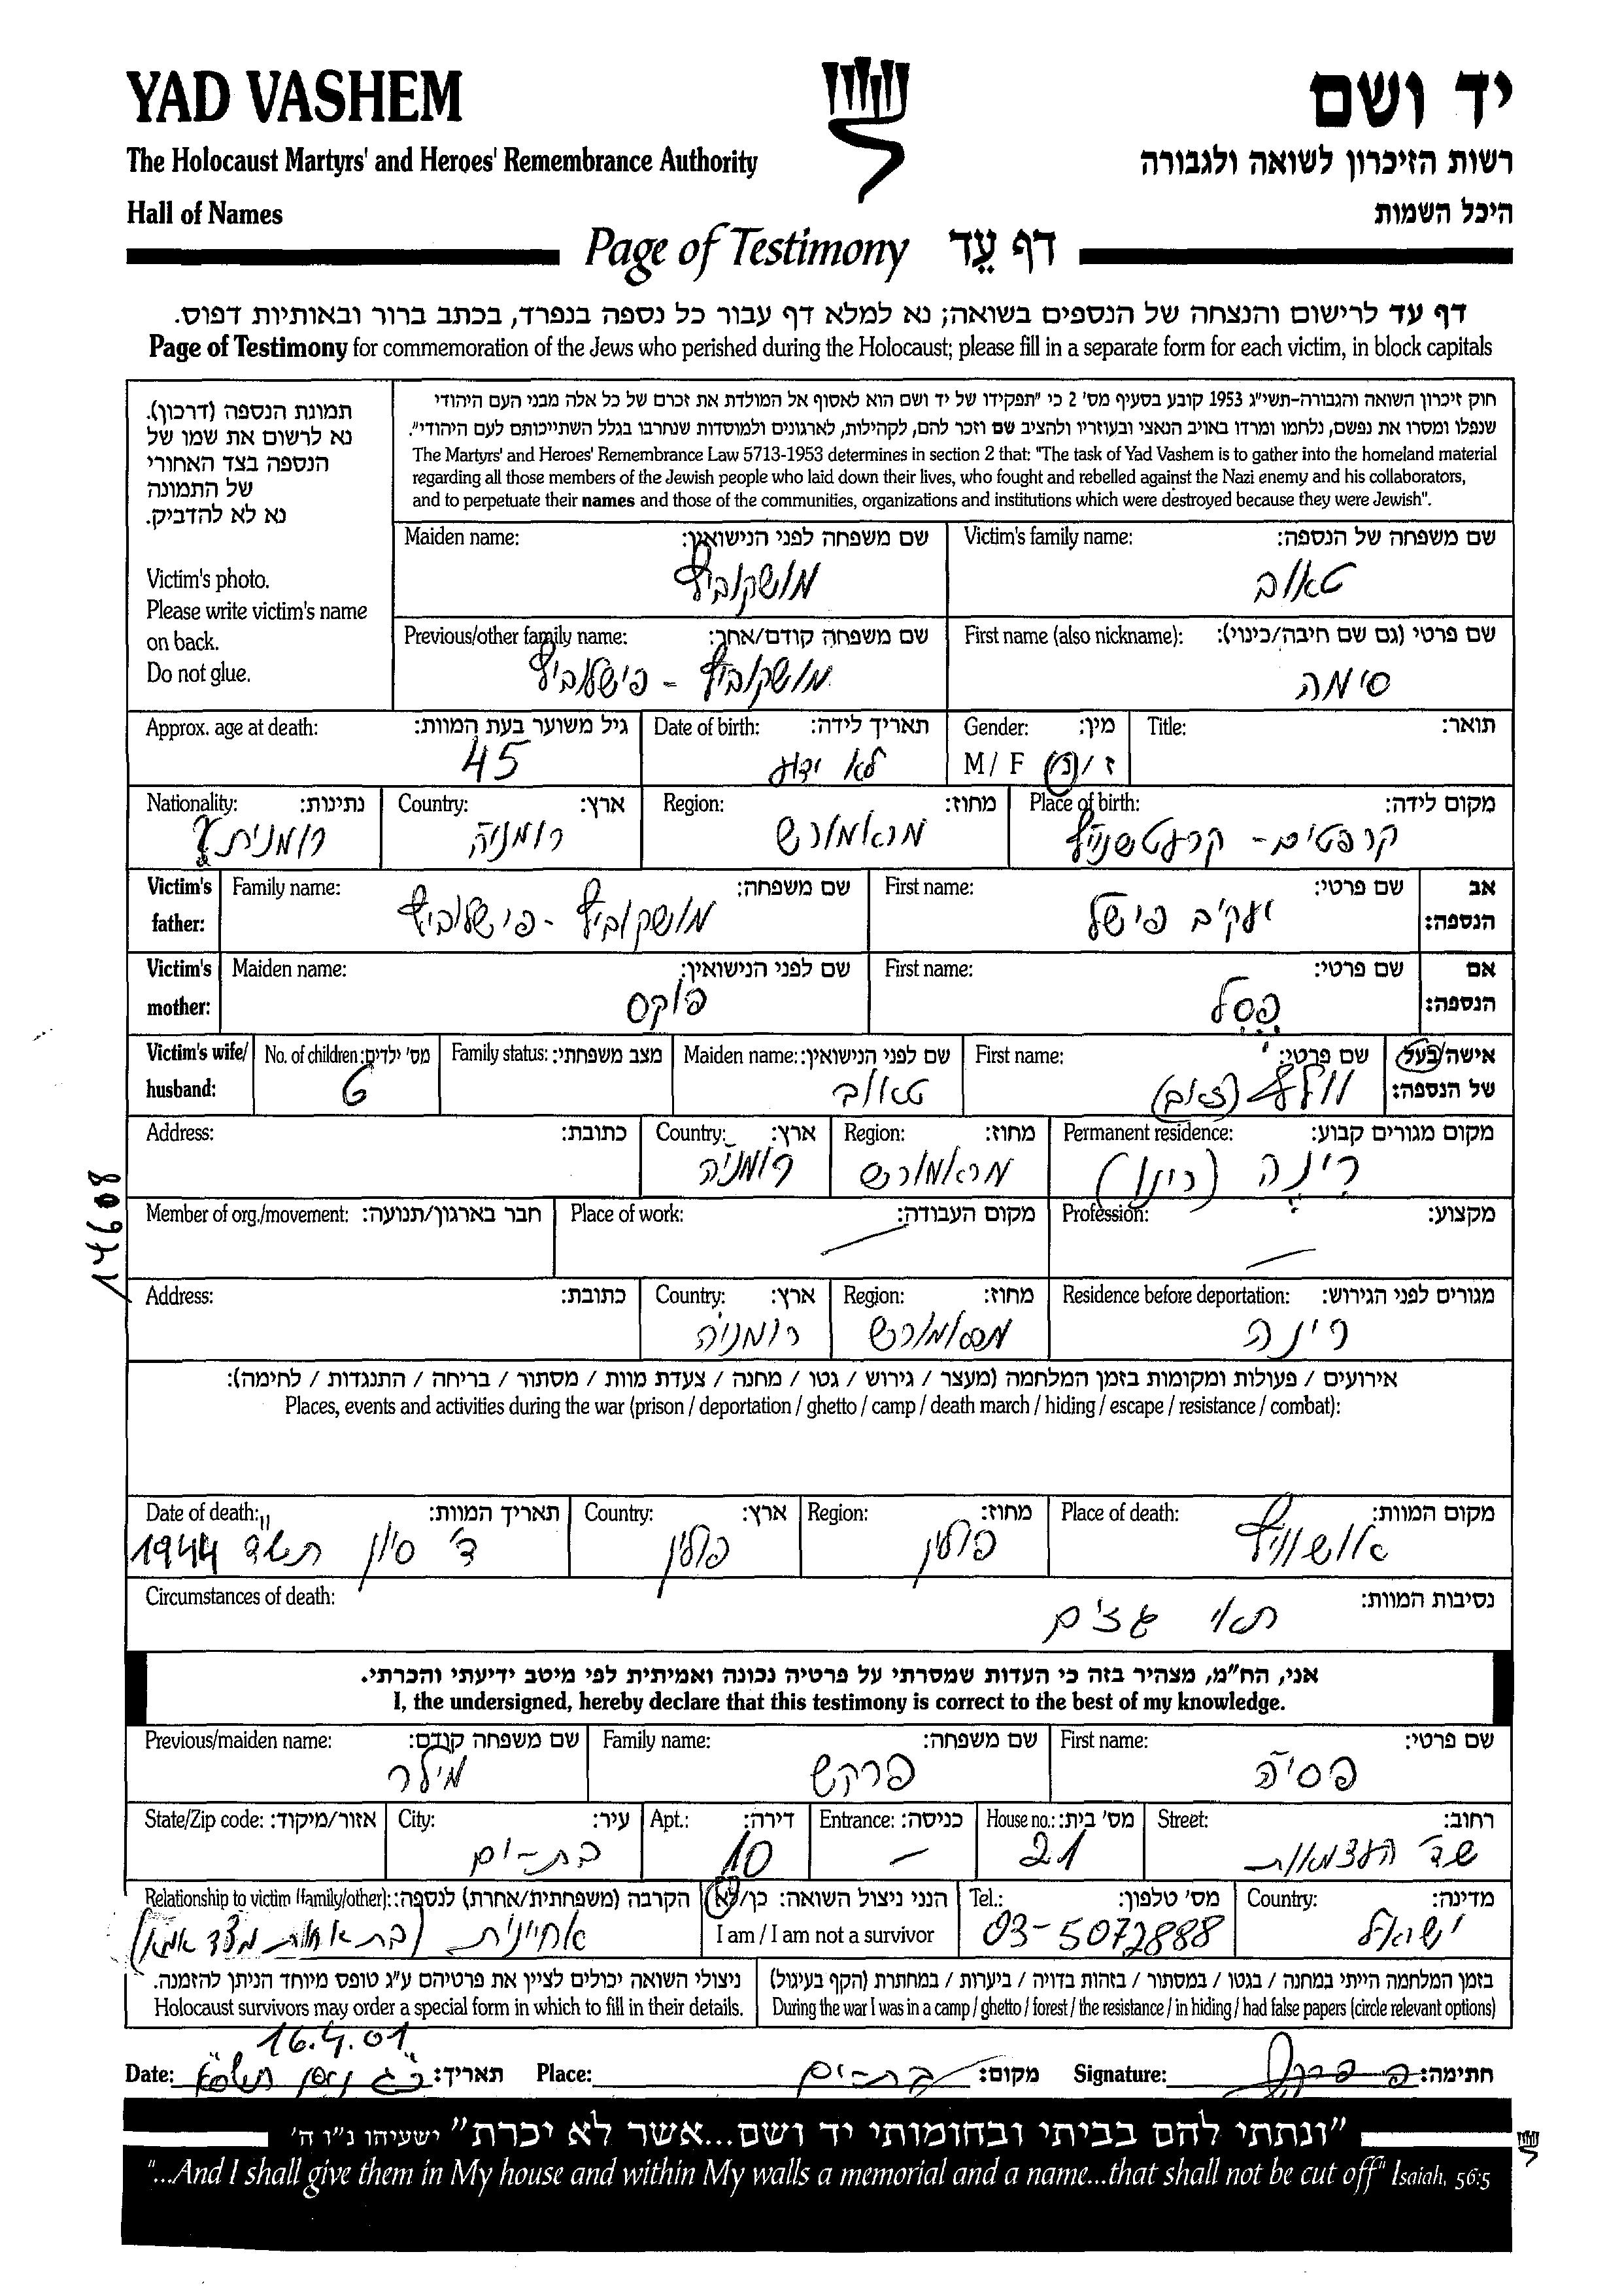 YAD VASHEM
יד ושם
The Holocaust Martyrs' and Heroes' Remembrance Authority
רשות הזיכרון לשואה ולגבורה
Hall of Names
היכל השמות
Page of Testimony דף עֵד
דף עד לרישום והנצחה של הנספים בשואה; נא למלא דף עבור כל נספה בנפרד, בכתב ברור ובאותיות דפוס.
Page of Testimony for commemoration of the Jews who perished during the Holocaust; please fill in a separate form for each victim, in block capitals
תמונת הנספה (דרכון).
נא לרשום את שמו של
הנספה בצד האחורי
של התמונה
נא לא להדביק.
Victim's photo.
Please write victim's name
on back.
Do not glue.
חוק זיכרון השואה והגבורה-תשי"ג 1953 קובע בסעיף מס' 2 כי "תפקידו של יד ושם הוא לאסוף אל המולדת את זכרם של כל אלה מבני העם היהודי
שנפלו ומסרו את נפשם, נלחמו ומרדו באויב הנאצי ובעוזריו ולהציב שם וזכר להם, לקהילות, לארגונים ולמוסדות שנחרבו בגלל השתייכותם לעם היהודי".
The Martyrs' and Heroes' Remembrance Law 5713-1953 determines in section 2 that: "The task of Yad Vashem is to gather into the homeland material
regarding all those members of the Jewish people who laid down their lives, who fought and rebelled against the Nazi enemy and his collaborators,
and to perpetuate their names and those of the communities, organizations and institutions which were destroyed because they were Jewish".
Victim's family name: שם משפחה של הנספה:
טאוב
Maiden name: שם משפחה לפני הנישואין:
מושקוביץ
First name (also nickname): שם פרטי (גם שם חיבה/כינוי):
סימה
Previous/other family name: שם משפחה קודם/אחר:
מושקוביץ - פישלוביץ
Title: תואר:
Gender: מין:
M / F ז / נ
Date of birth: תאריך לידה:
לא ידוע
Approx. age at death: גיל משוער בעת המוות:
45
Place of birth: מקום לידה:
קרפטים - קרעטשניץ
Region: מחוז:
מראמורש
Country: ארץ:
רומניה
Nationality: נתינות:
רומנית
Victim's father: אב הנספה:
First name: שם פרטי:
יעקב פישל
Family name: שם משפחה:
מושקוביץ - פישלוביץ
Victim's mother: אם הנספה:
First name: שם פרטי:
פסל
Maiden name: שם לפני הנישואין:
פוקס
Victim's wife/ husband: אישה/בעל של הנספה:
First name: שם פרטי:
וולף (זאב)
Maiden name: שם לפני הנישואין:
טאוב
Family status: מצב משפחתי:
No. of children: מס' ילדים:
6
Permanent residence: מקום מגורים קבוע:
רינה
Region: מחוז:
מראמורש
Country: ארץ:
רומניה
Address: כתובת:
Profession: מקצוע:
Place of work: מקום העבודה:
Member of org./movement: חבר בארגון/תנועה:
14608
Residence before deportation: מגורים לפני הגירוש:
רינה
Region: מחוז:
מראמורש
Country: ארץ:
רומניה
Address: כתובת:
אירועים / פעולות ומקומות בזמן המלחמה (מעצר / גירוש / גטו / מחנה / צעדת מוות / מסתור / בריחה / התנגדות / לחימה):
Places, events and activities during the war (prison / deportation / ghetto / camp / death march / hiding / escape / resistance / combat):
Place of death: מקום המוות:
אושוויץ
Region: מחוז:
פולין
Country: ארץ:
פולין
Date of death: תאריך המוות:
ד' סיון תשד 1944
Circumstances of death: נסיבות המוות:
תאי גזים
אני, הח"מ, מצהיר בזה כי העדות שמסרתי על פרטיה נכונה ואמיתית לפי מיטב ידיעתי והכרתי.
I, the undersigned, hereby declare that this testimony is correct to the best of my knowledge.
First name: שם פרטי:
פסיה
Family name: שם משפחה:
פרקש
Previous/maiden name: שם משפחה קודם:
מילר
Street: רחוב:
שד העצמאות
House no.: מס' בית:
21
Entrance: כניסה:
—
Apt.: דירה:
10
City: עיר:
בת-ים
State/Zip code: אזור/מיקוד:
Country: מדינה:
ישראל
Tel.: מס' טלפון:
03-5072888
הנני ניצול השואה: כן/לא
I am / I am not a survivor
Relationship to victim (family/other): הקרבה (משפחתית/אחרת) לנספה:
אחיינית (בת אחות מצד אמא)
בזמן המלחמה הייתי במחנה / בגטו / במסתור / בזהות בדויה / ביערות / במחתרת (הקף בעיגול)
During the war I was in a camp / ghetto / forest / the resistance / in hiding / had false papers (circle relevant options)
ניצולי השואה יכולים לציין את פרטיהם ע"ג טופס מיוחד הניתן להזמנה.
Holocaust survivors may order a special form in which to fill in their details.
16.4.01
Date: כ"ג ניסן תשס"א תאריך: Place: בת-ים מקום: Signature: חתימה:
"ונתתי להם בביתי ובחומותי יד ושם...אשר לא יכרת" ישעיהו נ"ו ה'
"...And I shall give them in My house and within My walls a memorial and a name...that shall not be cut off" Isaiah, 56:5